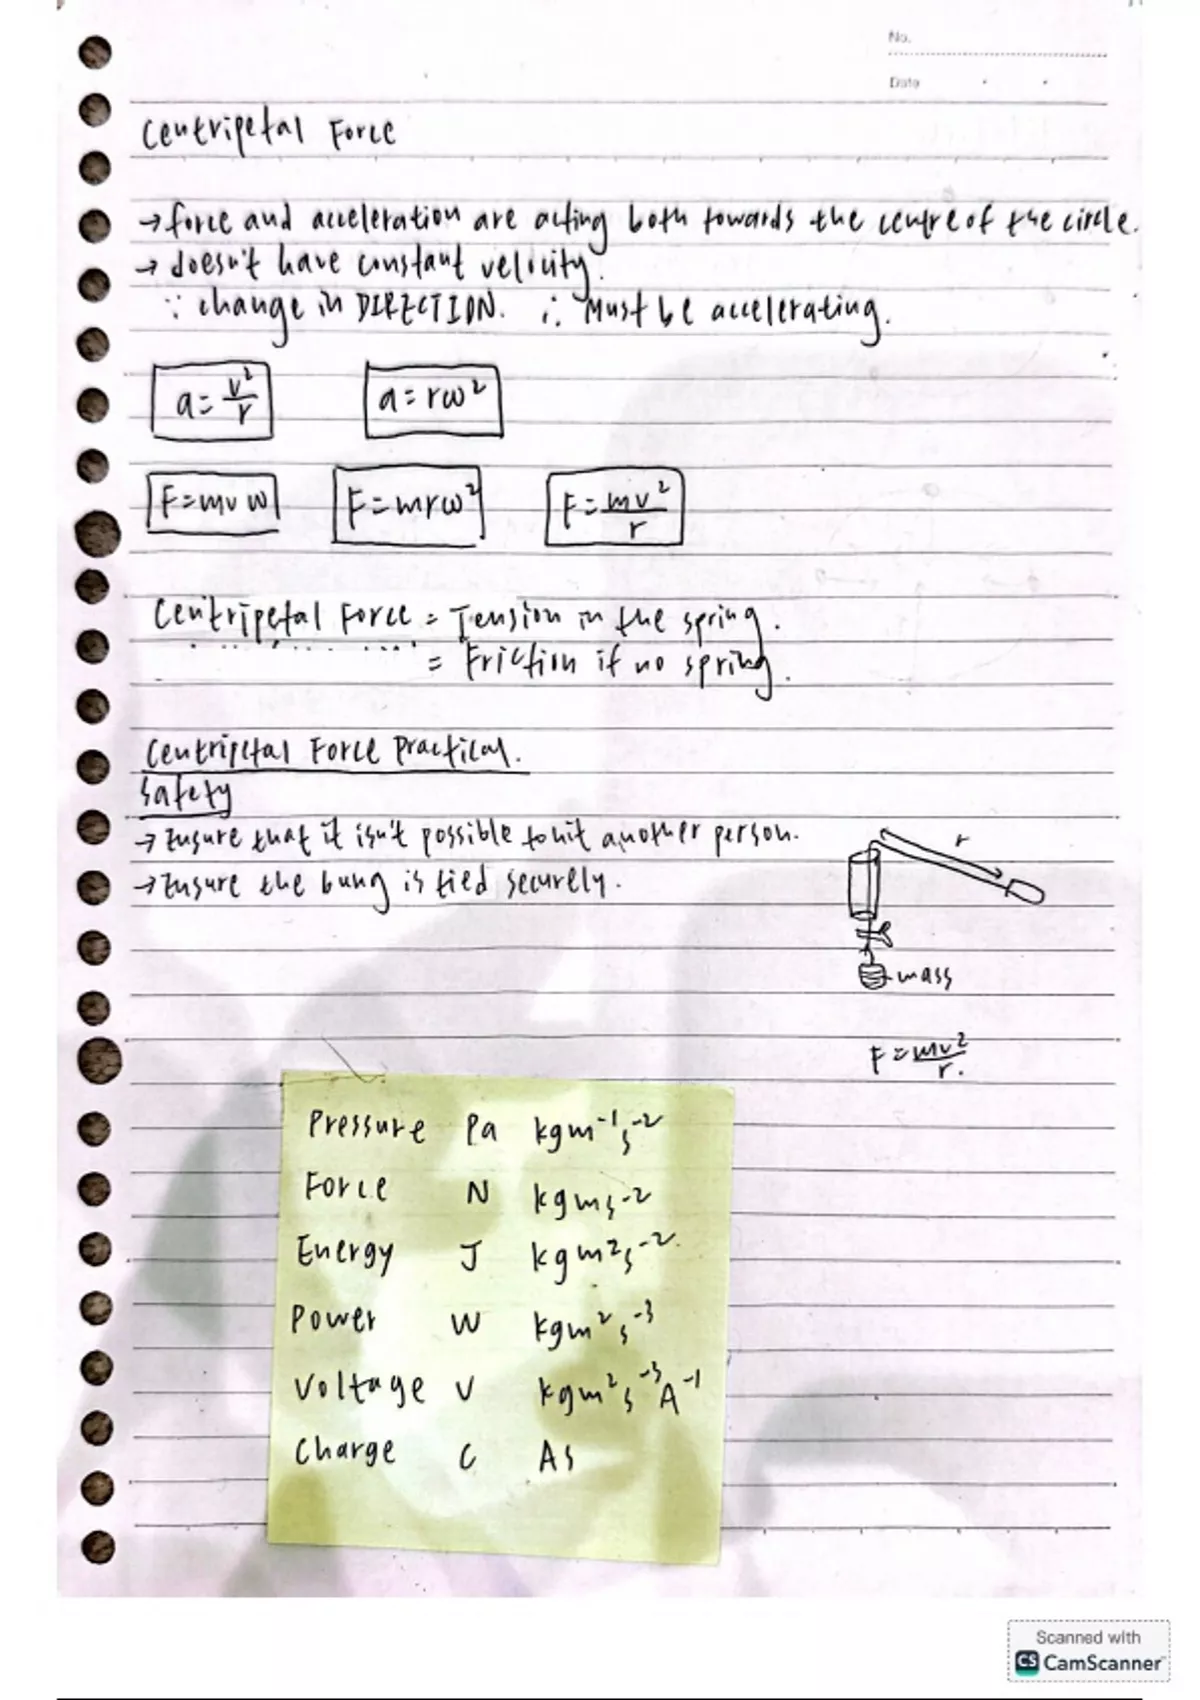 No.
Date
Centripetal Force
→ force and acceleration are acting both towards the centre of the circle.
→ doesn't have constant velocity.
∵ change in DIRECTION. ∴ Must be accelerating.
a = v²/r   a = rω²
F = mvω   F = mrω²   F = mv²/r
Centripetal Force = Tension in the spring.
= Friction if no spring.
Centripetal Force Practical.
Safety
→ Ensure that it isn't possible to hit another person.
→ Ensure the bung is tied securely.
r
mass
F = mv²/r.
Pressure Pa kgm⁻¹s⁻²
Force N kgms⁻²
Energy J kgm²s⁻²
Power W kgm²s⁻³
Voltage V kgm²s⁻³A⁻¹
Charge C As
Scanned with
CS CamScanner